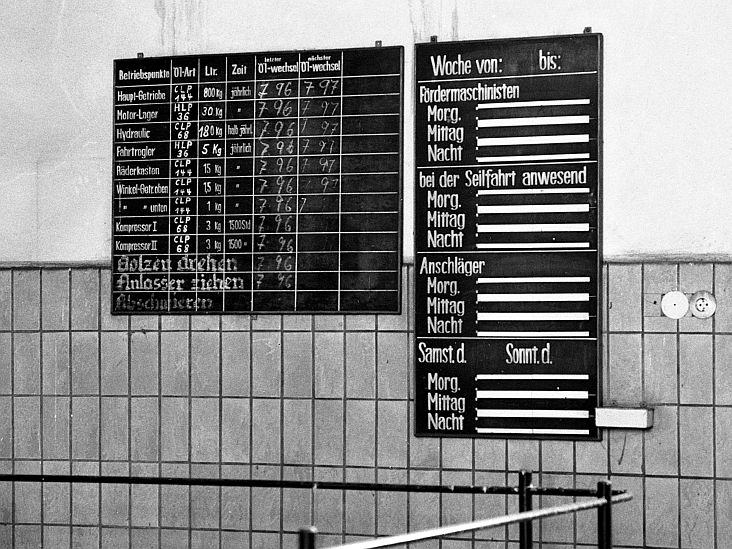 Betriebspunkte Öl-Art Ltr. Zeit letzter Öl-wechsel nächster Öl-wechsel
Haupt-Getriebe CLP 144 800 kg jährlich 7 96 7 97
Motor-Lager HLP 36 30 Kg " 7 96 7 97
Hydraulic CLP 68 180 kg halb jährl. 7 96 7 97
Fahrtregler HLP 36 5 Kg jährlich 7 96 7 97
Räderkasten CLP 144 15 Kg " 7 96 7 97
Winkel-Getr. oben CLP 144 1,5 Kg " 7 96 7 97
" " unten CLP 144 1 Kg " 7 96 7
Kompressor I CLP 68 3 Kg 1500 Std 7 96
Kompressor II CLP 68 3 Kg 1500 " 7 96
Bolzen drehen 7 96
Anlasser ziehen 7 96
Abschmieren
Woche von: bis:
Fördermaschinisten
Morg.
Mittag
Nacht
bei der Seilfahrt anwesend
Morg.
Mittag
Nacht
Anschläger
Morg.
Mittag
Nacht
Samst. d. Sonnt. d.
Morg.
Mittag
Nacht